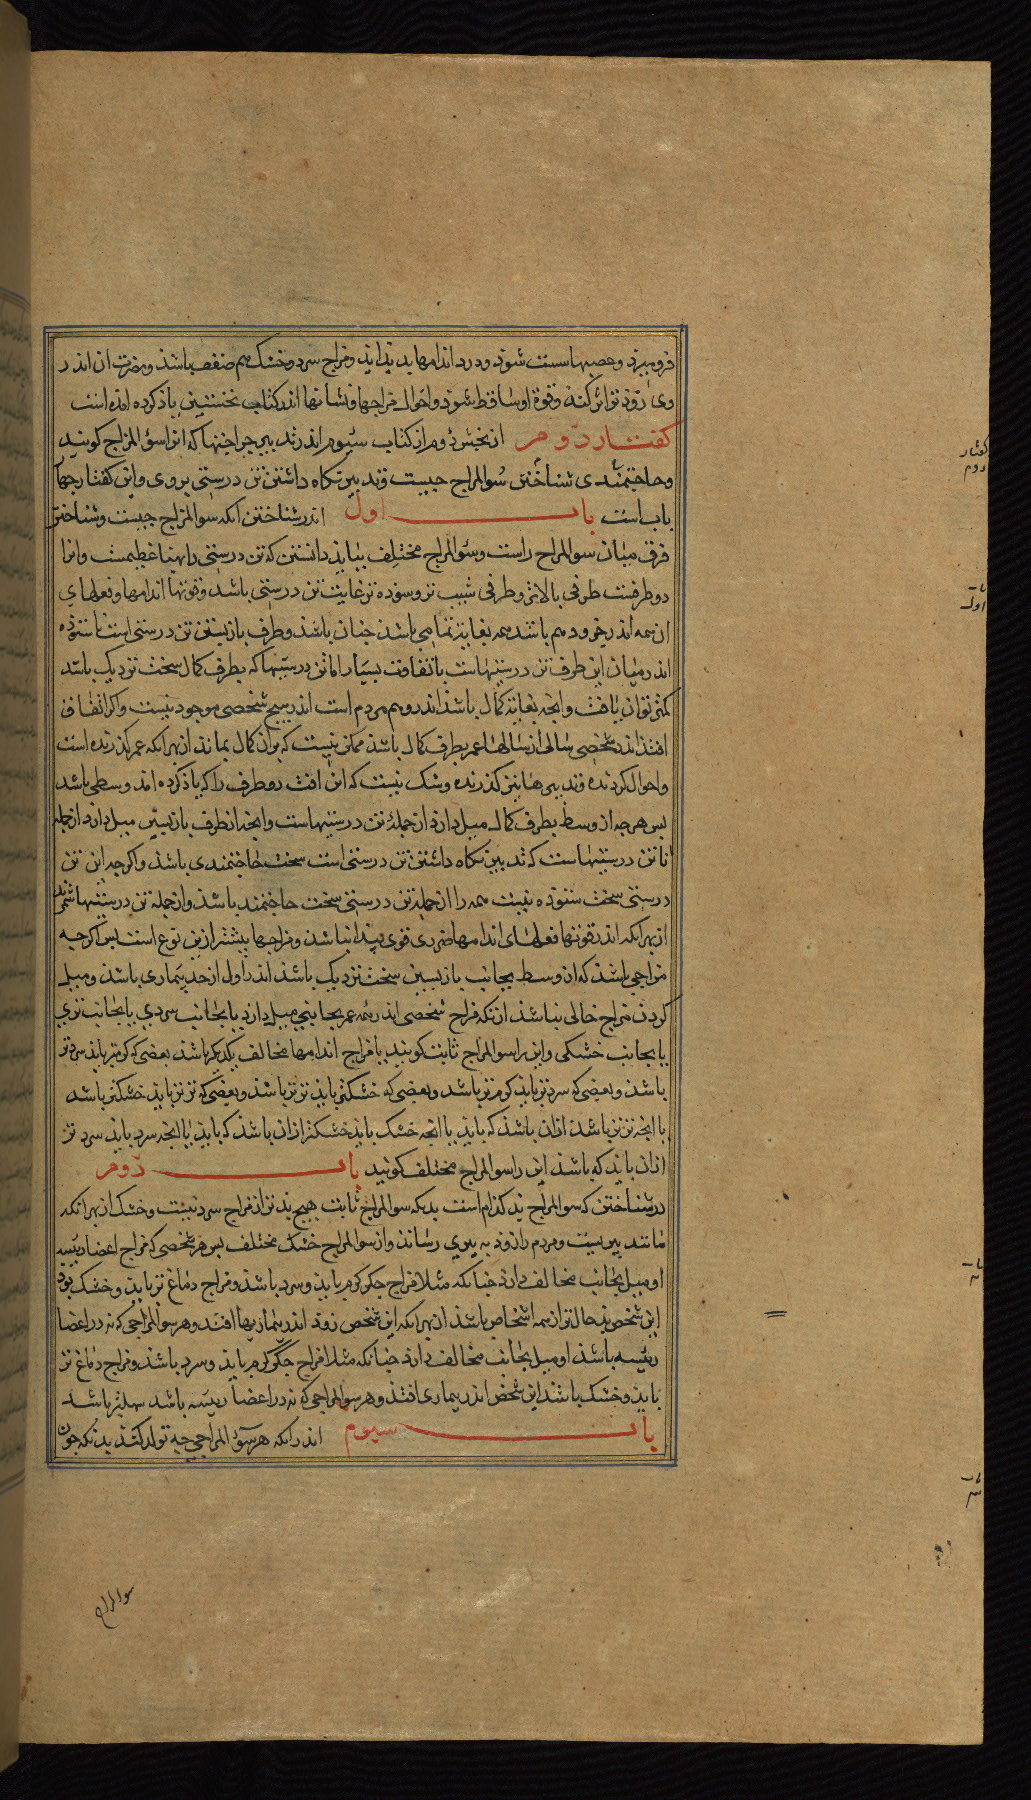 فرومیرد وعصبها سست شود ودرد اندامها پدید اید ومزاج سرد وخشک هم ضعف باشد ومضرت ان اندر
وی زود تر اثر کند وقوة او ساقط شود واحوال مزاجها ونشانها اندر کتاب نخستین یاد کرده امده است
کفتار دوم از بخش دوم از کتاب سیوم اندر تدبیر مزاجهایی که انرا سوء المزاج کویند
وحاجتمندی شناختن سوالمزاج چیست وتدبیر نکاه داشتن تن درستی بر وی واین کفتار چهار
باب است باب اول اندر شناختن انکه سوالمزاج چیست وشناختن
فرق میان سوالمزاج راست وسوالمزاج مختلف بباید دانستن که تن درستی را پهنا عظیمست وانرا
دو طرفست طرفی بالاتر وطرفی شیب تر وستوده تر غایت تن درستی باشد وقوتها اندامها وفعلهای
ان همه اندر خورد هم باشد همه بغایة تمامی باشد چنان باشد وطرف بازپسین تن درستی است ناستوده
اندر میان این طرف تن درستیهاست با تفاوت بسیار اما تن درستیها که بطرف کمال سخت نزدیک باشد
کمتر توان یافت وانچه بغایة کمال باشد اندر وهم مردم است اندر هیچ شخصی موجود نیست واکر اتفاق
افتد اندر شخصی سالی از سالها عمر بطرف کمال باشد ممکن نیست که بر ان کمال بماند از بهر انکه عمر کذرنده است
واحوال کردنده وتدبیرها نیز کذرنده وشک نیست که این افت دو طرف را که یاد کرده امد وسطی باشد
پس هرچه از وسط بطرف کمال میل دارد از جمله تن درستیهاست وانچه از طرف بازپسین میل دارد از جمله
نا تن درستیهاست که تدبیر نکاه داشتن تن درستی است سخت حاجتمندی باشد واکرچه این تن
درستی سخت ستوده نیست همه را از جمله تن درستی سخت حاجتمند باشد واز جمله تن درستیها شمرند
از بهر انکه اندر قوتها فعلهای اندامها ضرری قوی پیدا نباشد ومزاجها بیشتر ازین نوع است پس اکرچه
مزاجی باشد که از وسط بجانب بازپسین سخت نزدیک باشد اندر اول از حد بیماری باشد ومیل
کردن مزاج خالی نباشد از انکه مزاج شخصی اندر همه عمر بجانبی میل دارد یا بجانب سردی یا بجانب تری
یا بجانب خشکی واین را سوالمزاج ثابت کویند یا مزاج اندامها مخالف یکدیکر باشد بعضی که کرمتر باید سردتر
باشد وبعضی که سردتر باید کرم تر باشد وبعضی که خشکتر باید تر تر باشد وبعضی که تر تر باید خشکتر باشد
یا انچه تر تر باشد از ان باشد که باید یا انچه خشک باید خشکتر از ان باشد که باید یا انچه سرد باید سرد تر
از ان باید که باشد این را سوالمزاج مختلف کویند باب دوم
در شناختن که سوالمزاج بد کدام است بدانکه سوالمزاج ثابت هیچ بد تر از مزاج سرد نیست وخشک از بهر انکه
مانند پیریست ومردم را زود به پیری رساند واز سوالمزاج خشک مختلف پس هر شخصی که مزاج اعضا رییسه
او میل بجانب مخالف دارد چنانکه مثلا مزاج جکر کرم باید وسرد باشد ومزاج دماغ تر باید وخشک بود
این شخص بد حال تر از همه اشخاص باشد از بهر انکه این شخص زود اندر بیماریها افتد وهر سوالمزاجی که نه در اعضا
رییسه باشد او میل بجانب مخالف دارد چنانکه مثلا مزاج جکر کرم باید وسرد باشد ومزاج دماغ تر
باید وخشک باشد این شخص اندر بیماری افتد وهر سوالمزاجی که نه در اعضا رییسه باشد سهلتر باشد
باب سیوم اندر انکه هر سوء المزاجی چه تولد کند بدانکه چون
کفتار
دوم
باب
اول
سوالمزاج